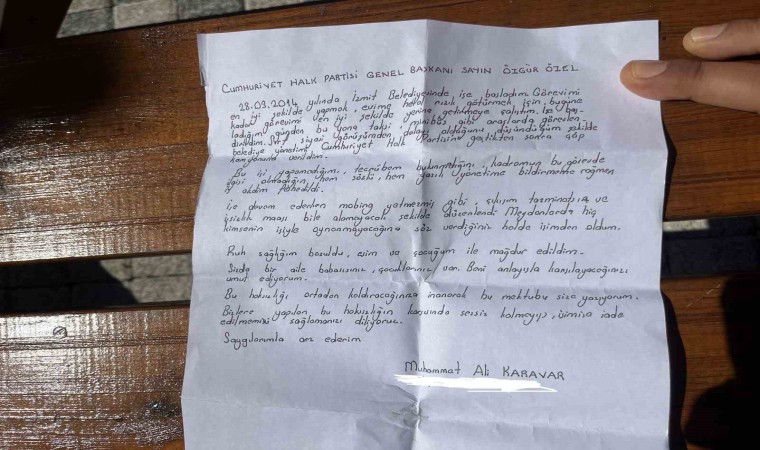 CUMHURİYET HALK PARTİSİ GENEL BAŞKANI SAYIN ÖZGÜR ÖZEL
28.03.2014 yılında İzmit Belediyesinde işe başladım. Görevimi
en iyi şekilde yapmak, evime helal rızık götürmek için, bugüne
kadar görevimi en iyi şekilde yerine getirmeye çalıştım. İşe baş-
ladığım günden bu yana taksi, minibüs gibi araçlarda görevlen-
dirildim. Sırf siyasi görüşümden dolayı olduğunu düşündüğüm şekilde
belediye yönetimi Cumhuriyet Halk Partisine geçtikten sonra çöp
kamyonuna verildim.
Bu işi yapamadığımı, tecrübem bulunmadığını, kadromun bu görevle
ilgisi olmadığını hem sözlü, hem yazılı yönetime bildirmeme rağmen
Devam eden mobing yetmezmiş gibi, çıkışım tazminatsız ve
işsizlik maaşı bile alamayacağı şekilde düzenlendi. Meydanlarda hiç
kimsenin işiyle oynanmayacağına söz verdiğiniz halde işimden oldum.
Ruh sağlığım bozuldu, eşim ve çocuğum ile mağdur edildim.
Sizde bir aile babasısınız, çocuklarınız var. Beni anlayışla karşılayacağınızı
umut ediyorum.
Bu haksızlığı ortadan kaldıracağınıza inanarak bu mektubu size yazıyorum.
Bizlere yapılan bu haksızlığın karşısında sessiz kalmayıp, işimize iade
edilmemizi sağlamanızı diliyoruz.
Saygılarımla arz ederim
Muhammat Ali KARAVAR